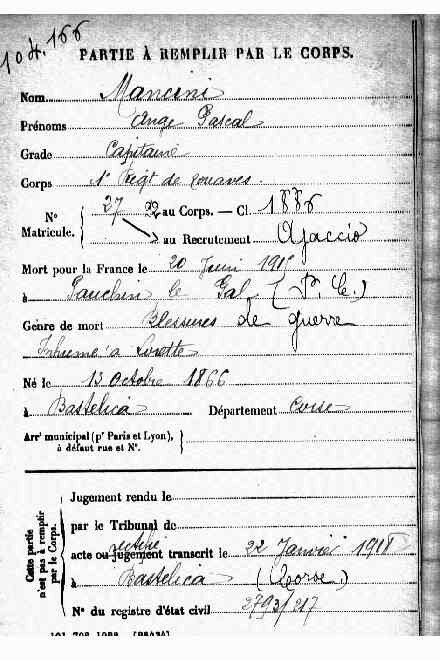 10 4. 166
PARTIE À REMPLIR PAR LE CORPS.
Nom Mancini
Prénoms Ange Pascal
Grade Capitaine
Corps 1er Régt de zouaves.
27 22 au Corps. — Cl. 1886
N° Matricule.
au Recrutement Ajaccio
Mort pour la France le 20 Juin 191
à Gauchin le Gal (P. C.)
Genre de mort Blessures de guerre
Inhumé à Lorette
Né le 13 octobre 1866
à Bastelica Département Corse
Arrt municipal (pr Paris et Lyon),
à défaut rue et N°.
Cette partie n'est pas à remplir par le Corps.
Jugement rendu le
par le Tribunal de
acte ou jugement transcrit le 22 Janvier 1918
à Bastelica (Corse)
N° du registre d'état civil 2793/217